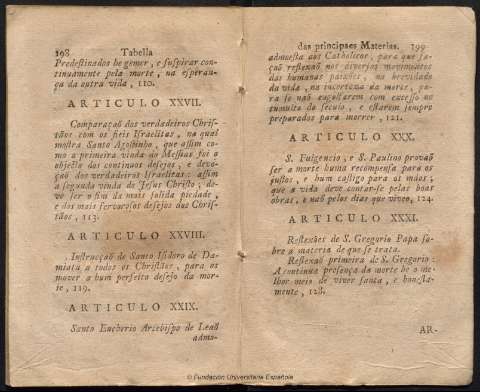 198 Tabella
Predestinados he gemer, e suspirar con-
tinuamente pela morte, na esperan-
ça da outra vida, 110.
ARTICULO XXVII.
Comparaçaõ dos verdadeiros Chris-
tãos com os fieis Israelitas, na qual
mostra Santo Agostinho, que assim co-
mo a primeira vinda do Messias foi o
objecto dos continuos desejos, e devo-
çaõ dos verdadeiros Israelitas: assim
a segunda vinda de Jesus Christo; de-
ve ser o fim da mais solida piedade,
e dos mais fervorosos desejos dos Chris-
tãos, 113.
ARTICULO XXVIII.
Instrucçaõ de Santo Isidoro de Da-
miata a todos os Christãos, para os
mover a hum perfeito desejo da mor-
te, 119.
ARTICULO XXIX.
Santo Eucherio Arcebispo de Leaõ
admo-
das principaes Materias. 199
admoesta aos Catholicos, para que fa-
çaõ reflexaõ nos diversos movimentos
das humanas paixões, na brevidade
da vida, na incerteza da morte, pa-
ra se naõ engolfarem com excesso no
tumulto do seculo, e estarem sempre
preparados para morrer, 121.
ARTICULO XXX.
S. Fulgencio, e S. Paulino provaõ
ser a morte huma recompensa para os
justos, e hum castigo para os máos;
que a vida deve contar-se pelas boas
obras, e naõ pelos dias que vivem, 124.
ARTICULO XXXI.
Reflexões de S. Gregorio Papa so-
bre a materia de que se trata.
Reflexaõ primeira de S. Gregorio:
A continua presença da morte he o me-
lhor meio de viver santa, e honesta-
mente, 128.
AR-
© Fundación Universitaria Española